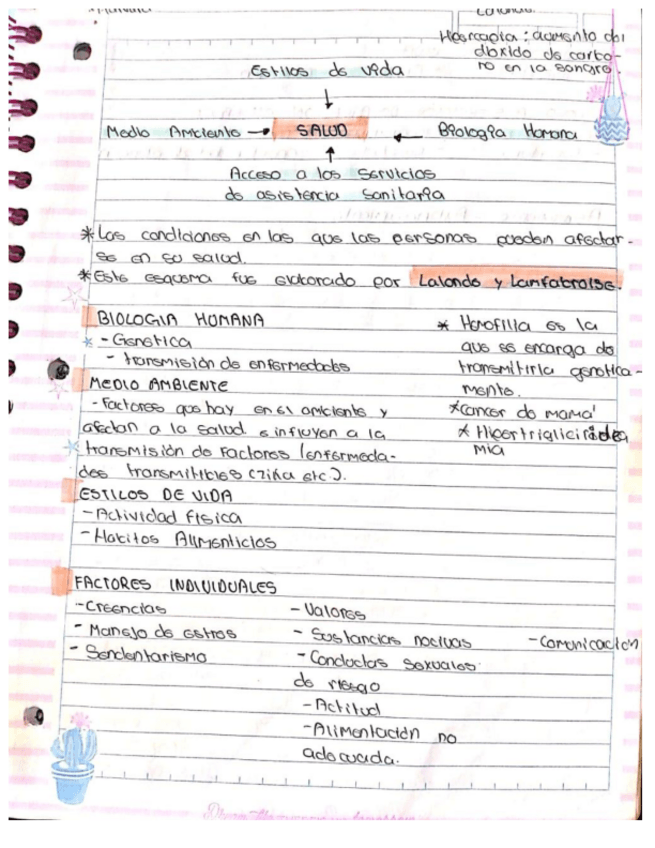 Hipercapnia: aumento del
dioxido de carbo-
no en la sangre.
Estilos de vida
Medio Ambiente → SALUD ← Biología Humana
Acceso a los Servicios
de asistencia sanitaria
*Las condiciones en las que las personas pueden afectar-
se en su salud.
*Este esquema fue elaborado por Lalonde y Lamfabroise.
BIOLOGIA HUMANA
* - Genetica
- transmisión de enfermedades
* Hemofilia es la
que se encarga de
transmitirla genetica-
mente.
*Cancer de mama
* Hipertrigliciridemia
MEDIO AMBIENTE
- Factores que hay en el ambiente y
afectan a la salud e influyen a la
transmisión de factores (enfermeda-
des transmitibles (zika etc.).
ESTILOS DE VIDA
- Actividad fisica
- Habitos Alimenticios
FACTORES INDIVIDUALES
- Creencias
- Manejo de estres
- Sendentarismo
- Valores
- Sustancias nocivas
- Conductas sexuales
de riesgo
- Actitud
- Alimentación no
adecuada.
- Comunicación